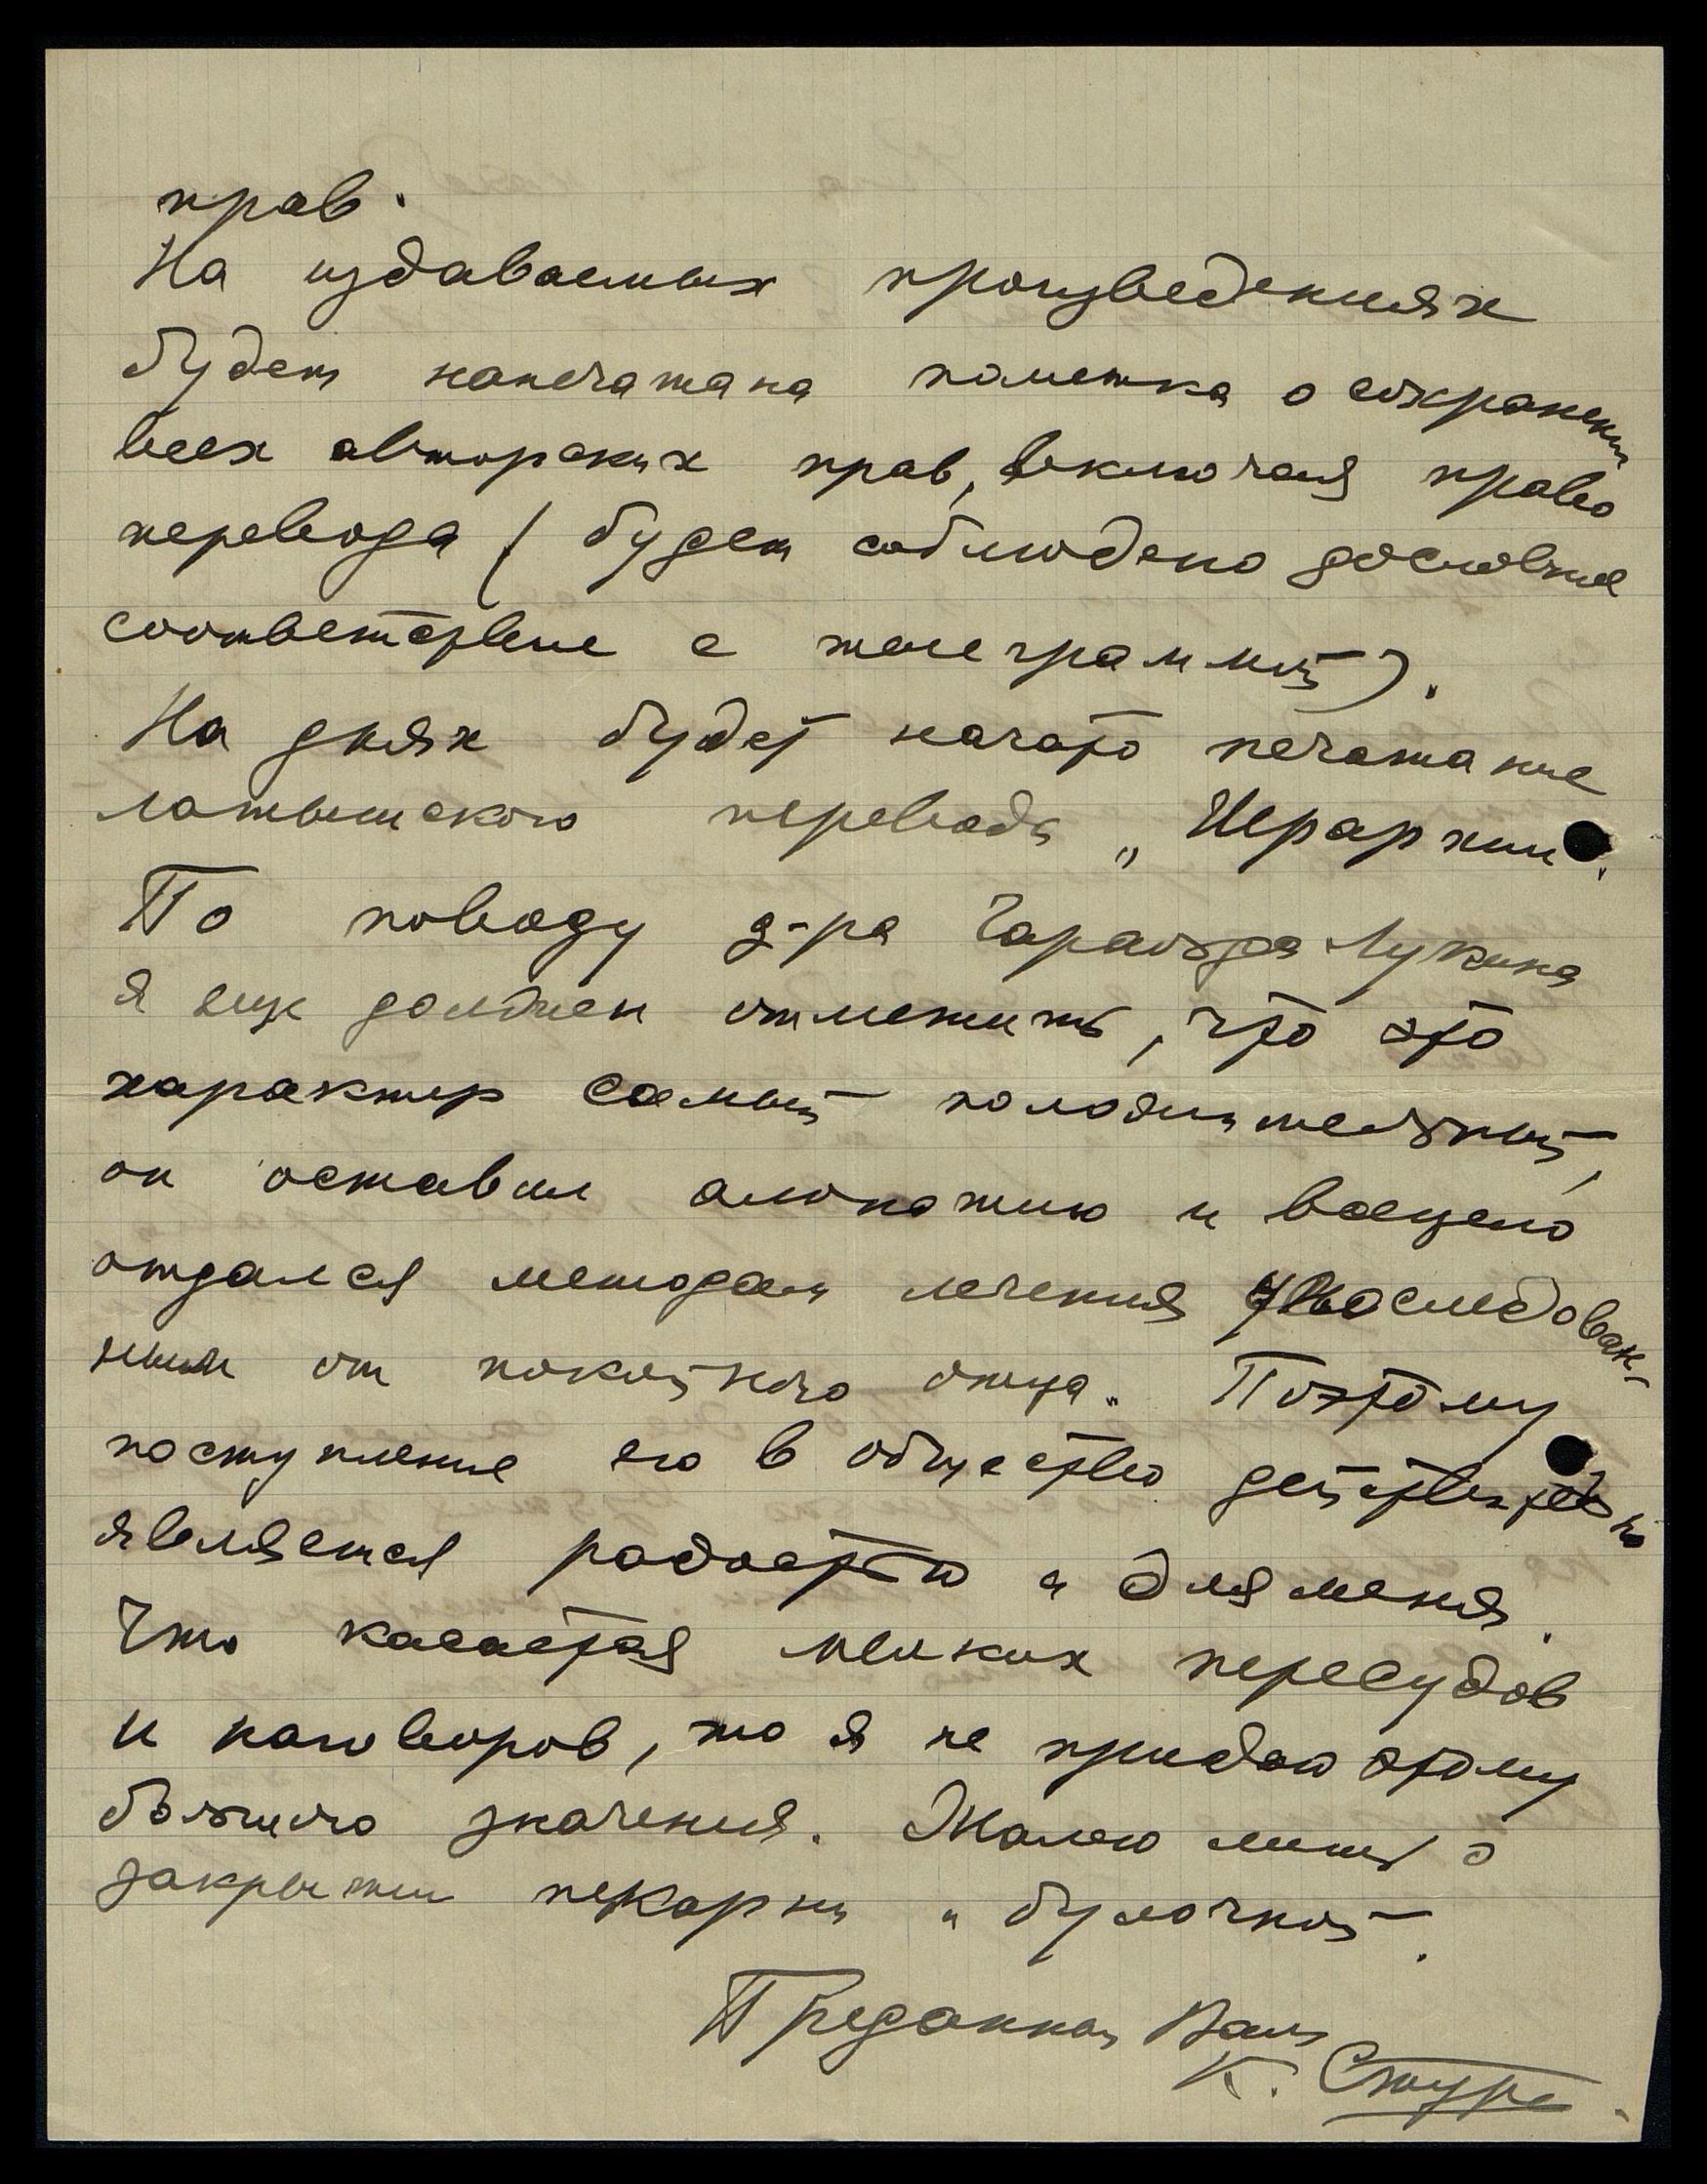 прав.
На издаваемых произведениях
будет напечатана пометка о сохранении
всех авторских прав, включая право
перевода (будет соблюдено дословное
соответствие с телеграммой).
На днях будет начато печатание
латышского перевода „Иерархии".
По поводу д-ра Гаральда Лукина
я еще должен отметить, что это
характер самый положительный,
он оставил аллопатию и всецело
отдался методам лечения унаследован-
ным от покойного отца. Поэтому
поступление его в общество действительно
является радостью и для меня.
Что касается мелких пересудов
и наговоров, то я не придаю этому
большого значения. Жалею лишь о
закрытии пекарни и булочной.
Преданный Вам
К. Стуре.